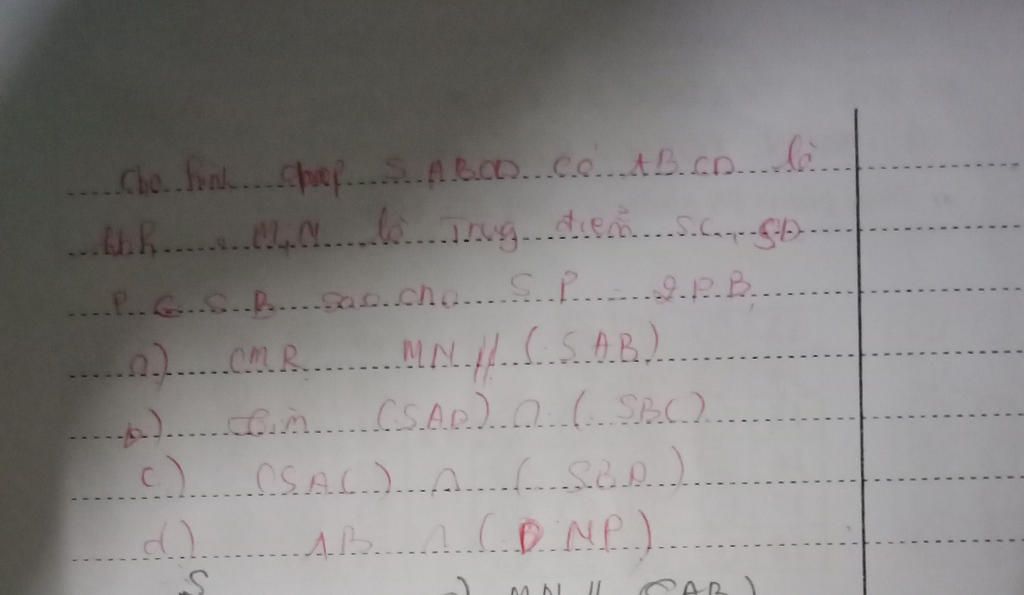 Cho hình chóp S.ABCD có ABCD là
hbh. M,N là Trug điểm SC, SD
P ∈ SB sao cho SP = 2PB
a) CMR MN // (SAB)
b) tìm (SAD) ∩ (SBC)
c) (SAC) ∩ (SBD)
d) AB ∩ (DMP)
S MN // (SAB)